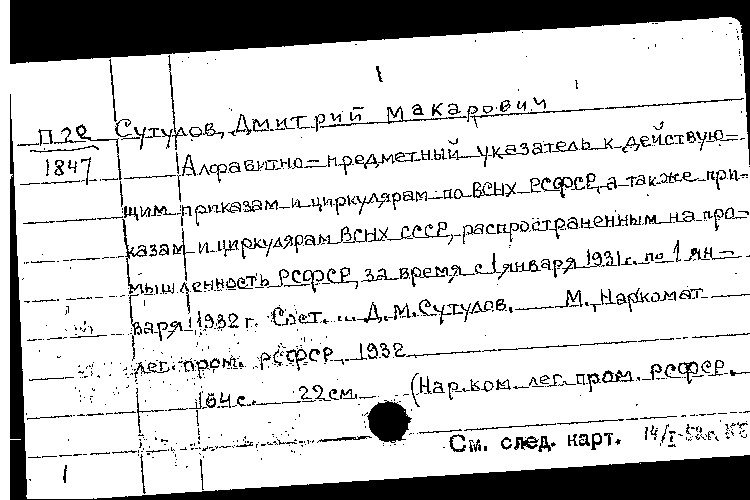 1
П 2е Сутулов, Дмитрий Макарович
1847 Алфавитно-предметный указатель к действую-
щим приказам и циркулярам по ВСНХ РСФСР, а также при-
казам и циркулярам ВСНХ СССР, распространенным на про-
мышленность РСФСР, за время с 1 января 1931 г. по 1 ян-
варя 1932 г. Сост. ... Д. М. Сутулов. М., Наркомат
лег. пром. РСФСР, 1932
164 с. 22 см. (Нар. ком. лег. пром. РСФСР.
См. след. карт. 14/I-52г.
1